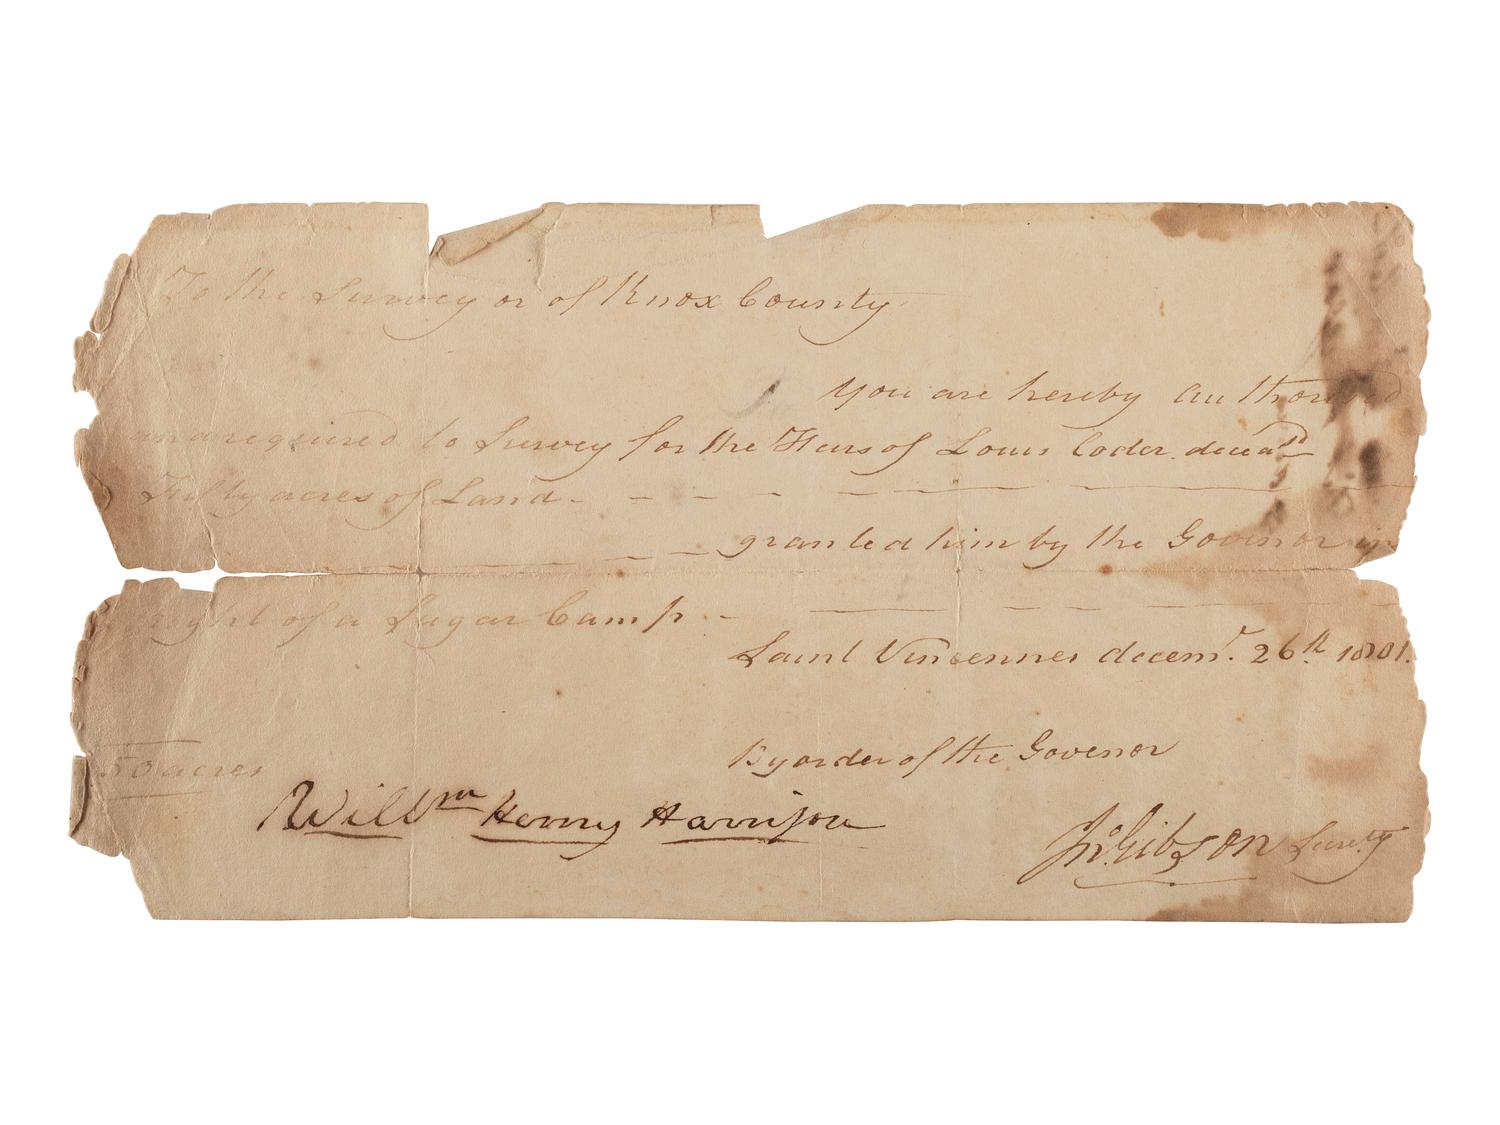 To the Surveyor of Knox County
You are hereby authorized
and required to Survey for the Heirs of Louis Coder deceasd
Fifty acres of Land
granted him by the Govenor in
right of a Sugar Camp
Saint Vincennes decemr. 26th 1801.
By order of the Govenor
50 acres
Willm Henry Harrison
Jno Gibson Secrety